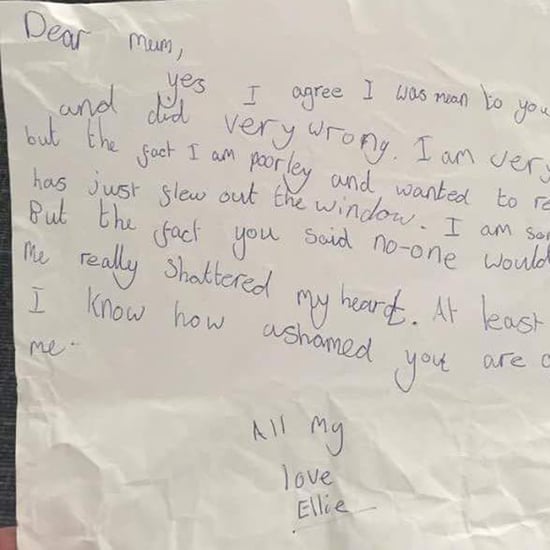 Dear mum,
yes I agree I was mean to you
and did very wrong. I am very
but the fact I am poorley and wanted to re
has just flew out the window. I am sor
But the fact you said no-one would
Me really shattered my heart. At least
I know how ashamed you are o
me.
All My
love
Ellie